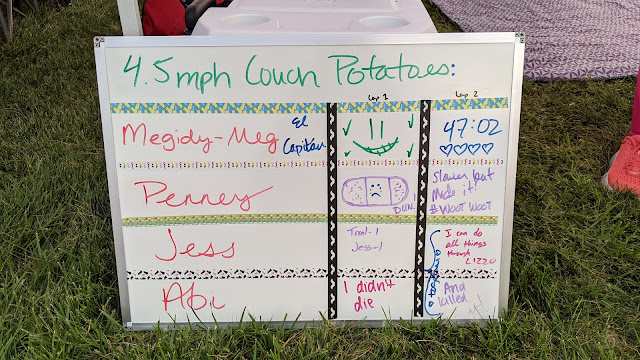 4.5mph Couch Potatoes:
Lap 1
Lap 2
Megidy-Meg
El
Capitán
47:02
Penney
DUN!
Slower but
Made it!
#WOOT WOOT
Jess
Trail-1
Jess-1
I can do
all things
through
LIZZO
Abi
I didn't
die
And
killed